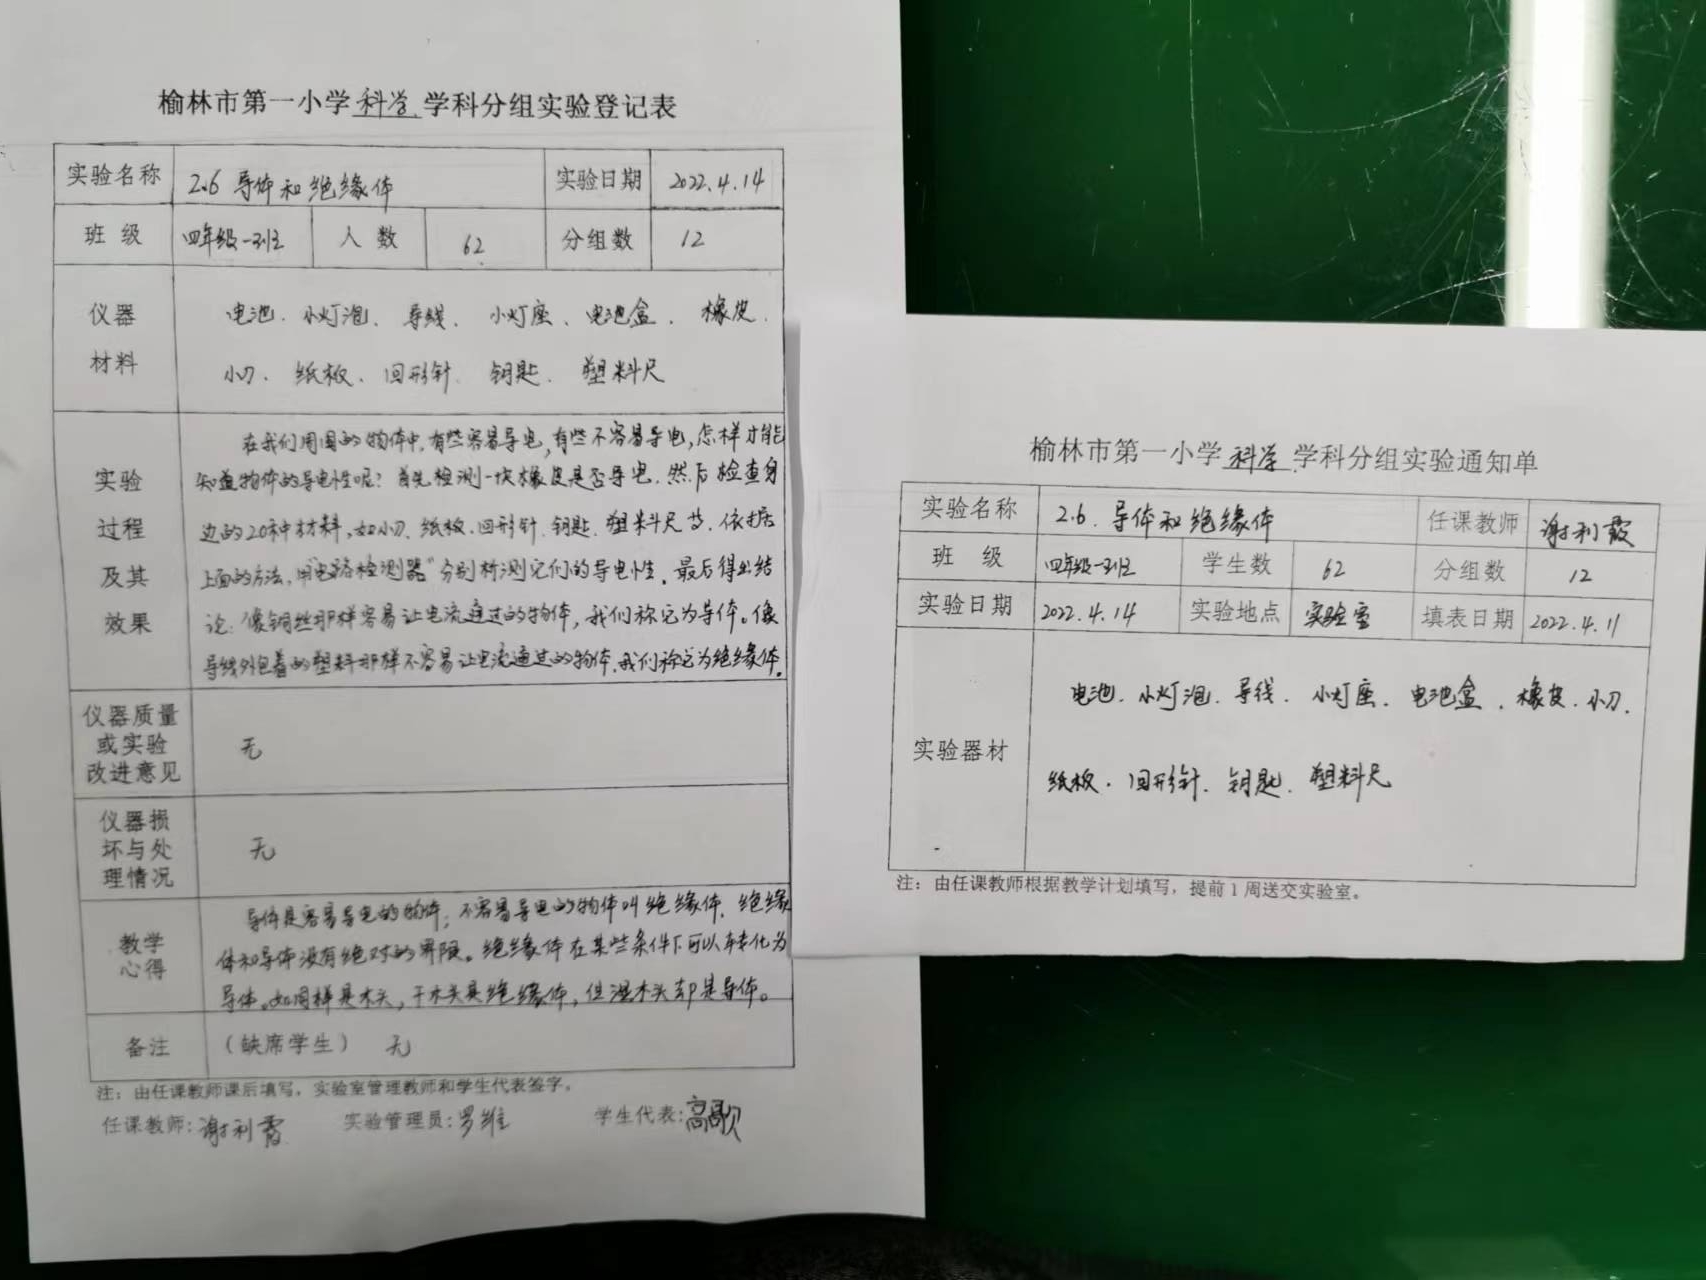 榆林市第一小学科学学科分组实验登记表
实验名称 2.6 导体和绝缘体 实验日期 2022.4.14
班 级 四年级一班 人 数 62 分组数 12
仪器 材料
电池、小灯泡、导线、小灯座、电池盒、橡皮、
小刀、纸板、回形针、钥匙、塑料尺
实验 过程 及其 效果
在我们周围的物体中,有些容易导电,有些不容易导电,怎样才能
知道物体的导电性呢?首先检测一块橡皮是否导电,然后检查身
边的20种材料,如小刀、纸板、回形针、钥匙、塑料尺等,依据
上面的方法,用“电路检测器”分别检测它们的导电性,最后得出结
论:像铜丝那样容易让电流通过的物体,我们称它为导体。像
导线外包着的塑料那样不容易让电流通过的物体,我们称它为绝缘体。
仪器质量
或实验
改进意见
无
仪器损
坏与处
理情况
无
教学
心得
导体是容易导电的物体;不容易导电的物体叫绝缘体。绝缘
体和导体没有绝对的界限。绝缘体在某些条件下可以转化为
导体。如同样是木头,干木头是绝缘体,但湿木头却是导体。
备注 (缺席学生) 无
注:由任课教师课后填写,实验室管理教师和学生代表签字。
任课教师:谢利霞 实验管理员:罗维 学生代表:高歌
榆林市第一小学科学学科分组实验通知单
实验名称 2.6、导体和绝缘体 任课教师 谢利霞
班 级 四年级一班 学生数 62 分组数 12
实验日期 2022.4.14 实验地点 实验室 填表日期 2022.4.11
实验器材
电池、小灯泡、导线、小灯座、电池盒、橡皮、小刀、
纸板、回形针、钥匙、塑料尺
注:由任课教师根据教学计划填写,提前1周送交实验室。